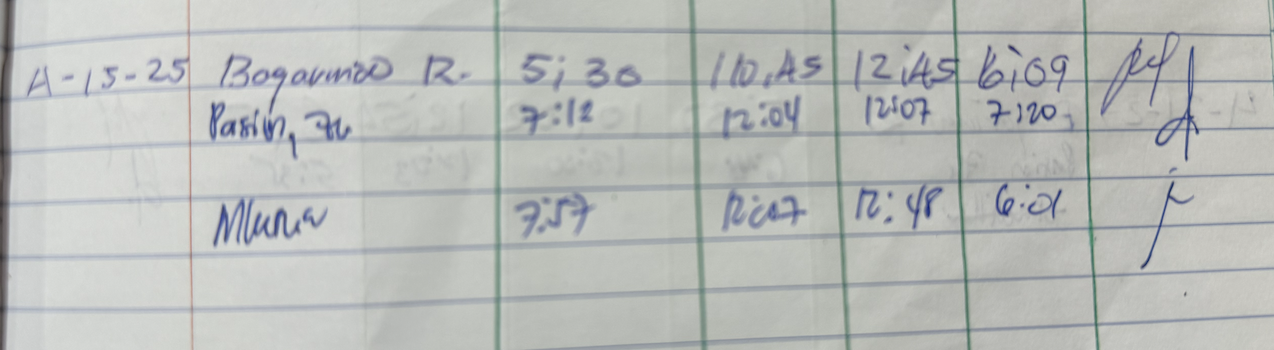 A-15-25 Bogarmido R. 5:30 110.45 12:45 6:09
Pasion, 7:12 12:04 12:07 7:20
7:57 12:07 12:48 6:01